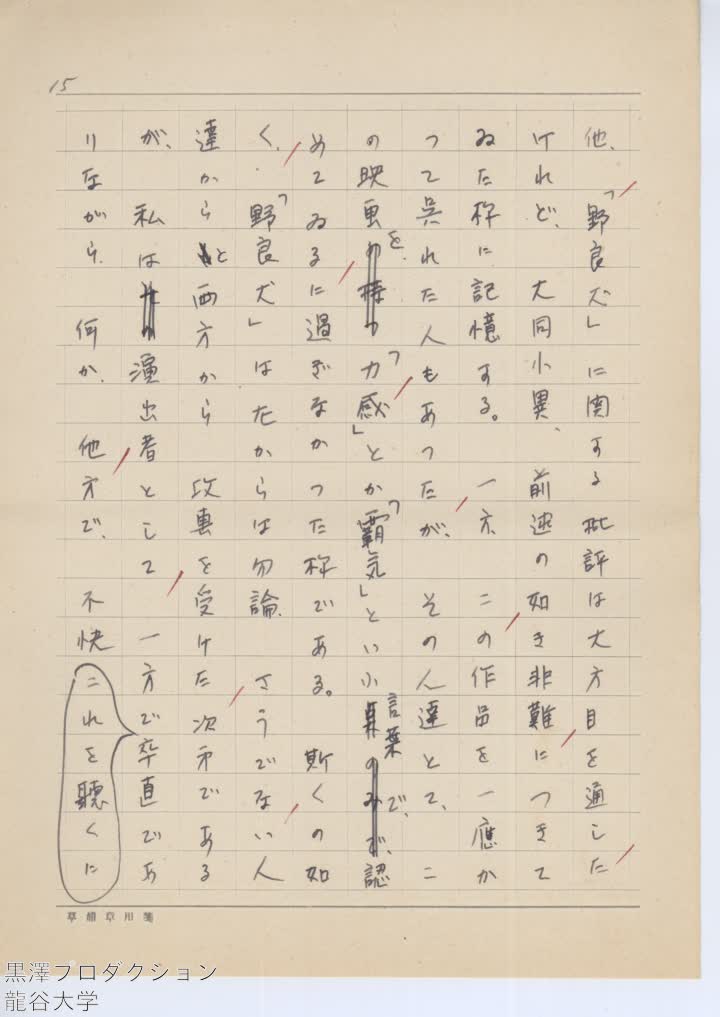 15
他、「野良犬」に関する批評は大方目を通した
けれど、大同小異、前述の如き非難につきて
ゐた様に記憶する。一方、この作品を一應か
つて呉れた人もあつたが、その人達とて、こ
の映画を、「力感」とか「覇気」といふ言葉で、認
めてゐるに過ぎなかつた様である。斯くの如
く、「野良犬」はたからは勿論、さうでない人
達からと両方から攻撃を受けた次第である
が、私は演出者として一方で卒直であ
りながら、何か、他方で、不快
これを聴くに
箋用草稿草
黒澤プロダクション
龍谷大学